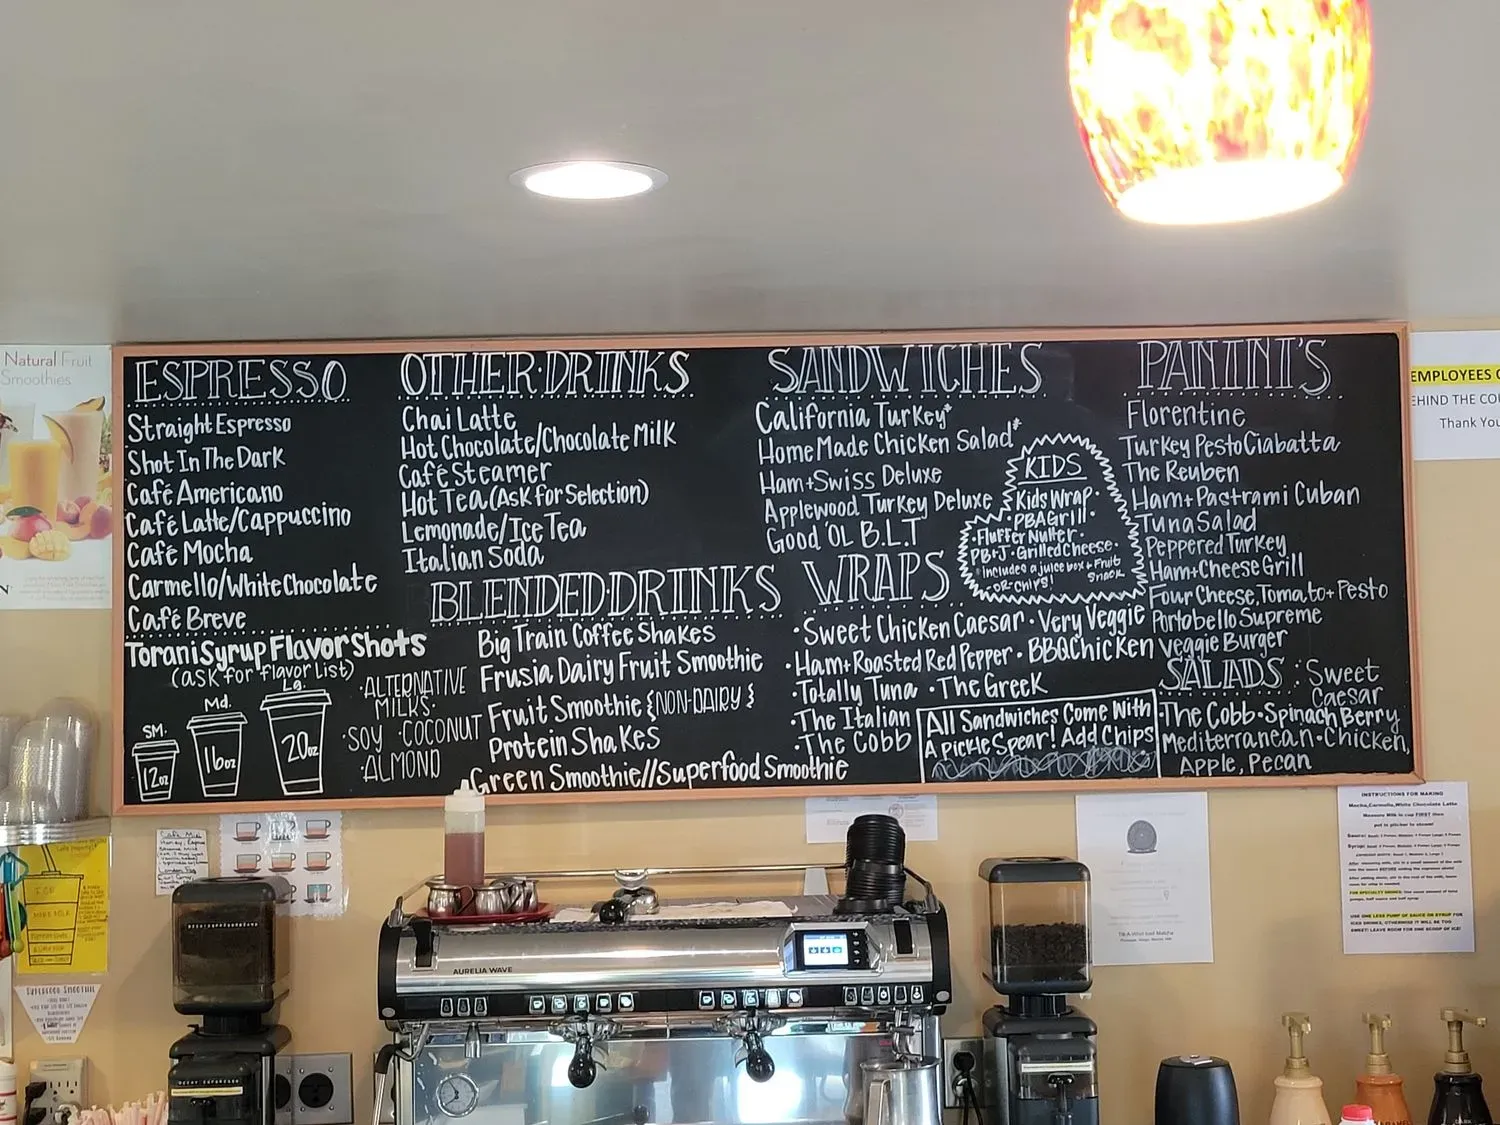 Natural Fruit
Smoothies
ESPRESSO
Straight Espresso
Shot In The Dark
Café Americano
Café Latte/Cappuccino
Café Mocha
Carmello/White Chocolate
Café Breve
Torani Syrup Flavor Shots
(ask for flavor list)
SM.
12oz
Md.
16oz
La.
20oz
·ALTERNATIVE
MILKS·
·SOY ·COCONUT
·ALMOND
OTHER·DRINKS
Chai Latte
Hot Chocolate/Chocolate Milk
Café Steamer
Hot Tea (Ask for Selection)
Lemonade/Ice Tea
Italian Soda
BLENDED·DRINKS
Big Train Coffee Shakes
Frusia Dairy Fruit Smoothie
Fruit Smoothie {NON-DAIRY}
Protein Shakes
Green Smoothie//Superfood Smoothie
SANDWICHES
California Turkey*
Home Made Chicken Salad*
Ham+Swiss Deluxe
Applewood Turkey Deluxe
Good 'OL B.L.T
KIDS
Kids Wrap·
·PBA Grill·
·Fluffer Nutter·
PB+J·Grilled Cheese·
*includes a juice box + Fruit
Snack
-OR- Chips!
WRAPS
·Sweet Chicken Caesar ·Very Veggie
·Ham+Roasted Red Pepper ·BBQ Chicken
·Totally Tuna ·The Greek
·The Italian
·The Cobb
All Sandwiches Come With
A pickle Spear! Add Chips
PANINI'S
Florentine
Turkey Pesto Ciabatta
The Reuben
Ham+Pastrami Cuban
Tuna Salad
Peppered Turkey
Ham+Cheese Grill
Four Cheese, Tomato+Pesto
Portobello Supreme
Veggie Burger
SALADS : Sweet
Caesar
·The Cobb·Spinach Berry
Mediterranean·Chicken,
Apple, Pecan
EMPLOYEES O
EHIND THE COU
Thank You
INSTRUCTIONS FOR MAKING
Mocha,Carmello,White Chocolate Latte
Measure Milk in cup FIRST then
USE ONE LESS PUMP OF SAUCE OR SYRUP FOR
ICED DRINKS, OTHERWISE IT WILL BE TOO
SWEET! LEAVE ROOM FOR ONE SCOOP OF ICE!
AURELIA WAVE
ICE
SUPERFOOD SMOOTHIE